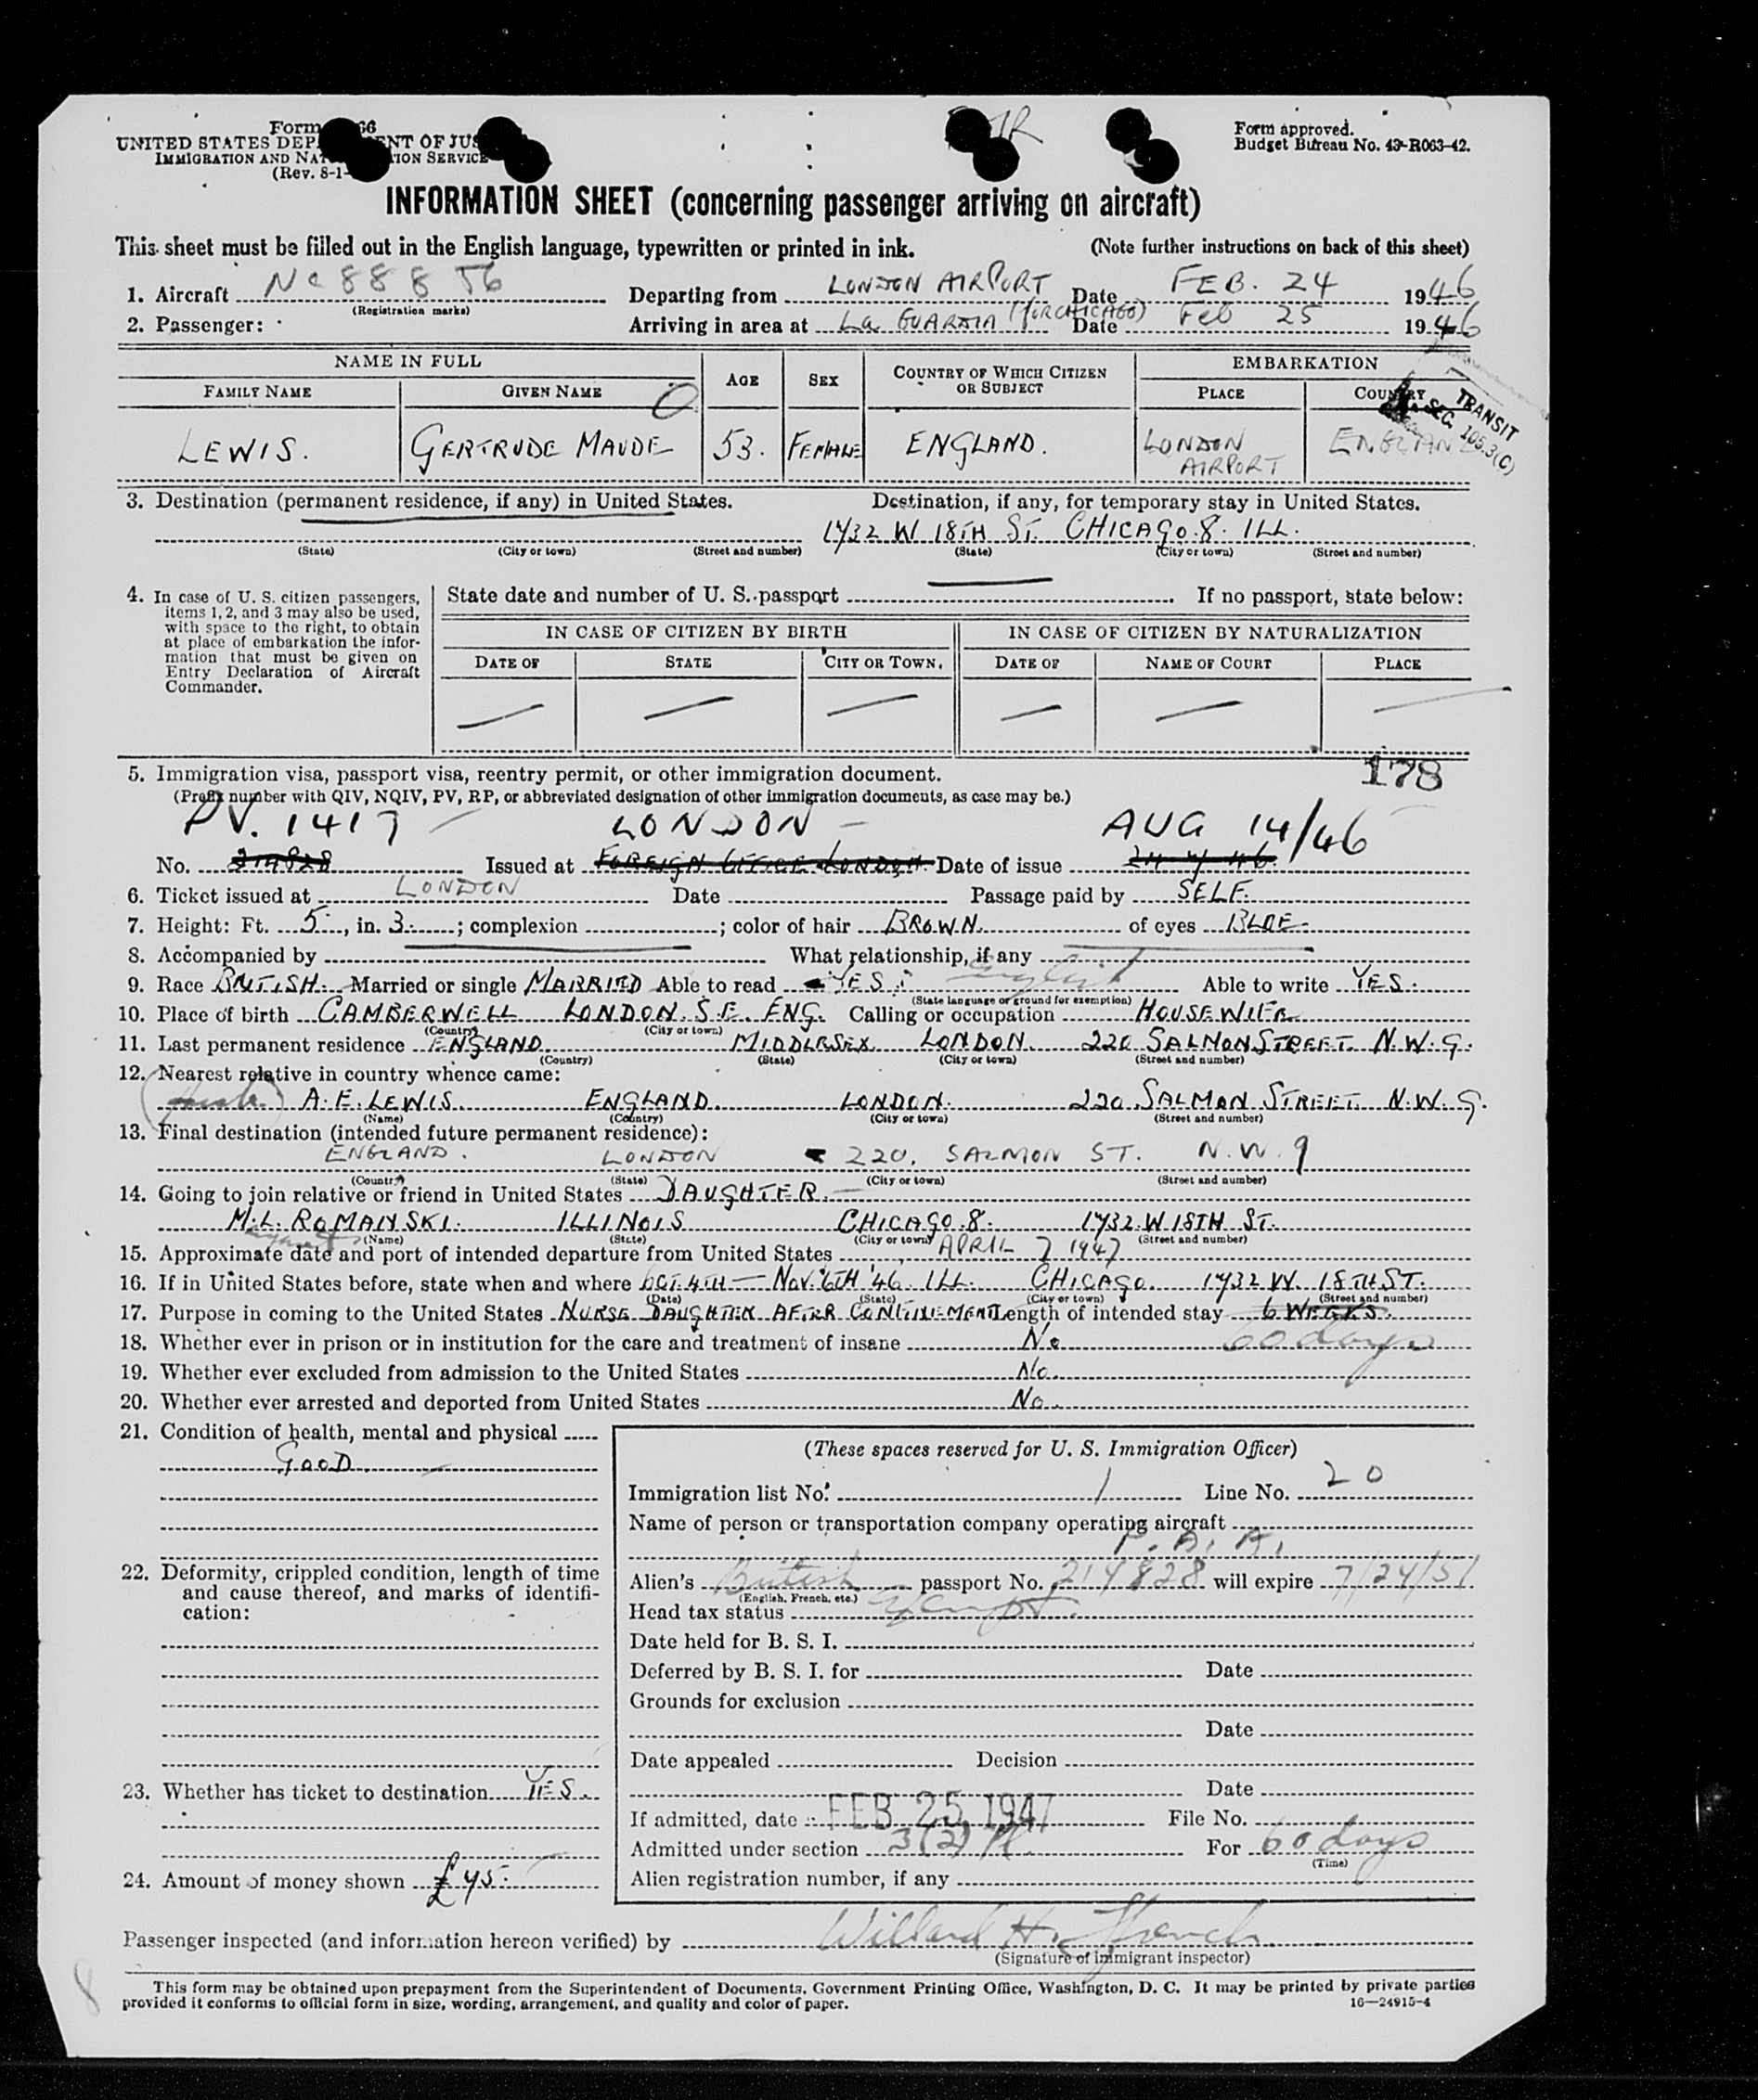 Form 66
UNITED STATES DEP NT OF JUS
IMMIGRATION AND NAT TION SERVICE
(Rev. 8-1-
Form approved.
Budget Bureau No. 43-R063-42.
INFORMATION SHEET (concerning passenger arriving on aircraft)
This sheet must be filled out in the English language, typewritten or printed in ink. (Note further instructions on back of this sheet)
1. Aircraft Nc 88856 Departing from LONDON AIRPORT Date FEB. 24 1946
(Registration marks)
2. Passenger: Arriving in area at La GUARDIA (FOR CHICAGO) Date Feb 25 1946
NAME IN FULL AGE SEX COUNTRY OF WHICH CITIZEN OR SUBJECT EMBARKATION
FAMILY NAME GIVEN NAME PLACE COUNTRY
TRANSIT
SEC. 105.3(C)
LEWIS. GERTRUDE MAUDE 53. FEMALE ENGLAND. LONDON AIRPORT ENGLAN
3. Destination (permanent residence, if any) in United States. Destination, if any, for temporary stay in United States.
1732 W 18TH ST. CHICAGO. 8. ILL.
(State) (City or town) (Street and number) (State) (City or town) (Street and number)
4. In case of U. S. citizen passengers, items 1, 2, and 3 may also be used, with space to the right, to obtain at place of embarkation the information that must be given on Entry Declaration of Aircraft Commander.
State date and number of U. S. passport If no passport, state below:
IN CASE OF CITIZEN BY BIRTH IN CASE OF CITIZEN BY NATURALIZATION
DATE OF STATE CITY OR TOWN. DATE OF NAME OF COURT PLACE
178
5. Immigration visa, passport visa, reentry permit, or other immigration document.
(Prefix number with QIV, NQIV, PV, RP, or abbreviated designation of other immigration documents, as case may be.)
PV. 1417 — LONDON — AUG 14/46
No. 214828 Issued at FOREIGN OFFICE LONDON. Date of issue 24 7 46.
6. Ticket issued at LONDON Date Passage paid by SELF.
7. Height: Ft. 5, in. 3; complexion ; color of hair BROWN. of eyes BLUE.
8. Accompanied by What relationship, if any
9. Race BRITISH. Married or single MARRIED Able to read YES. English Able to write YES.
(State language or ground for exemption)
10. Place of birth CAMBERWELL LONDON. S.E. ENG. Calling or occupation HOUSEWIFE
(Country) (City or town)
11. Last permanent residence ENGLAND MIDDLESEX LONDON. 220 SALMON STREET. N.W.9.
(Country) (State) (City or town) (Street and number)
12. Nearest relative in country whence came:
A. E. LEWIS. ENGLAND. LONDON. 220 SALMON STREET. N.W.9.
(Name) (Country) (City or town) (Street and number)
13. Final destination (intended future permanent residence):
ENGLAND. LONDON 220, SALMON ST. N.W.9
(Country) (State) (City or town) (Street and number)
14. Going to join relative or friend in United States DAUGHTER.—
M. L. ROMANSKI. ILLINOIS CHICAGO. 8. 1732. W 18TH ST.
(Name) (State) (City or town) (Street and number)
15. Approximate date and port of intended departure from United States APRIL 7 1947
16. If in United States before, state when and where OCT. 4TH — NOV. 6TH '46. ILL. CHICAGO. 1732 W. 18TH ST.
(Date) (State) (City or town) (Street and number)
17. Purpose in coming to the United States NURSE DAUGHTER AFTER CONFINEMENT Length of intended stay 6 WEEKS.
60 days
18. Whether ever in prison or in institution for the care and treatment of insane No
19. Whether ever excluded from admission to the United States No.
20. Whether ever arrested and deported from United States No.
21. Condition of health, mental and physical
GOOD
22. Deformity, crippled condition, length of time and cause thereof, and marks of identification:
23. Whether has ticket to destination YES.
24. Amount of money shown £45.
(These spaces reserved for U. S. Immigration Officer)
Immigration list No. 1 Line No. 20
Name of person or transportation company operating aircraft
P. A. A.
Alien's British passport No. 214828 will expire 7/24/51
(English, French, etc.)
Head tax status Exempt.
Date held for B. S. I.
Deferred by B. S. I. for Date
Grounds for exclusion
Date
Date appealed Decision
Date
If admitted, date FEB 25 1947 File No.
Admitted under section 3(2) For 60 days
(Time)
Alien registration number, if any
Passenger inspected (and information hereon verified) by Willard H. French
(Signature of immigrant inspector)
This form may be obtained upon prepayment from the Superintendent of Documents, Government Printing Office, Washington, D. C. It may be printed by private parties
provided it conforms to official form in size, wording, arrangement, and quality and color of paper. 16—24915-4
8